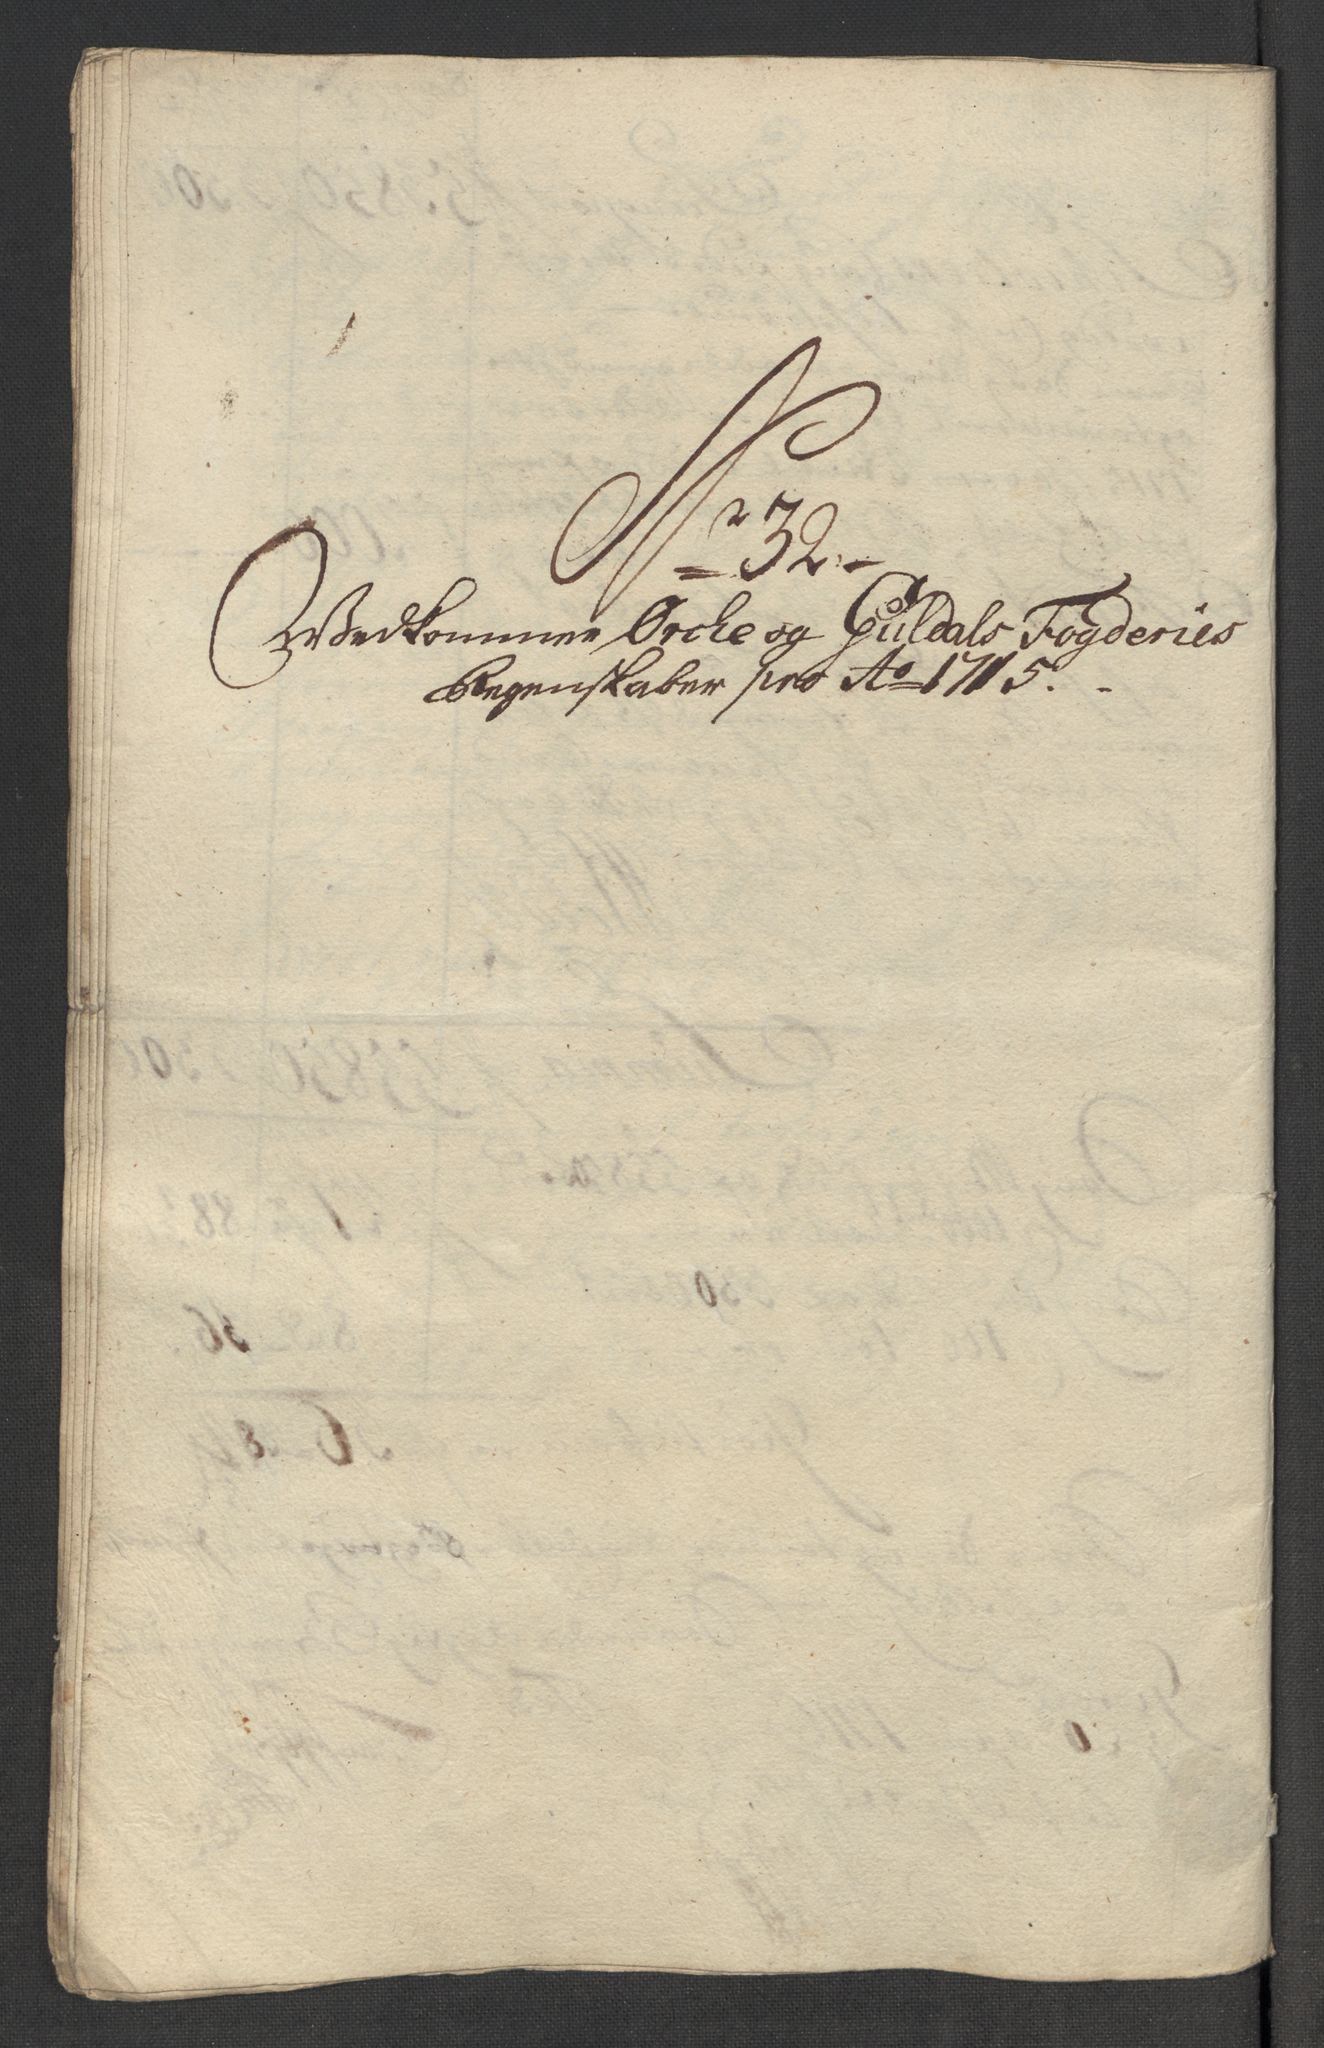 Nr 32.
Vedkommer Orche og Guldals Fogderies
Regenskaber pro Ao 1715.